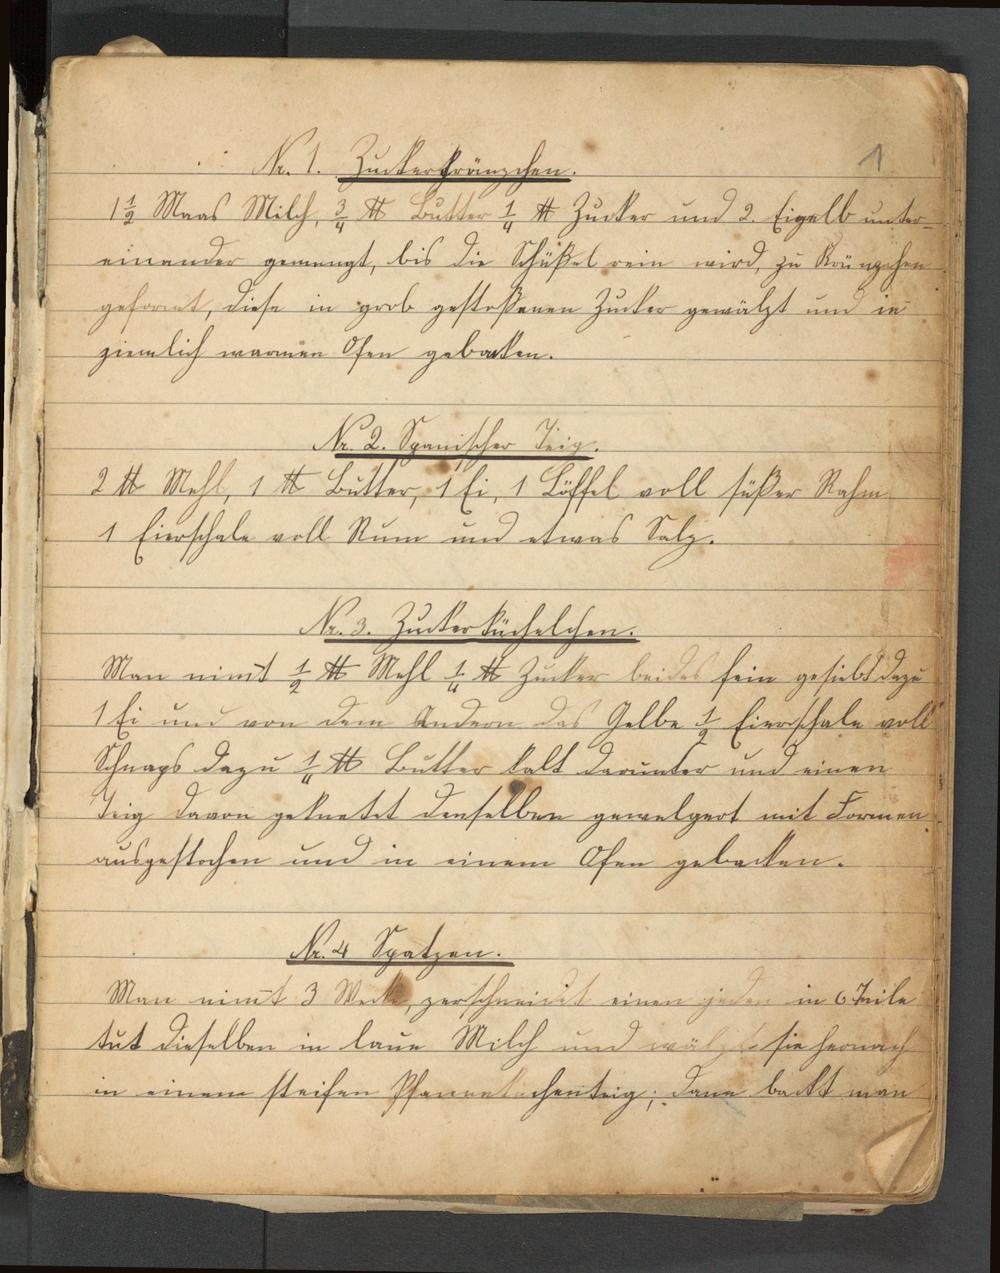 1
Nr. 1. Zuckerkränzchen.
1 1/2 Maas Milch, 3/4 ℔ Butter 1/4 ℔ Zucker und 2. Eigelb unter-
einander gemengt, bis die Schüßel rein wird, zu Kränzchen
geformt, diese in grob gestoßenen Zucker gewälzt und in
ziemlich warmen Ofen gebacken.
Nr. 2. Spanischer Teig.
2 ℔ Mehl, 1 ℔ Butter, 1 Ei, 1 Löffel voll süßer Rahm
1 Eierschale voll Rum und etwas Salz.
Nr. 3. Zuckerküchelchen.
Man nim̄t 1/2 ℔ Mehl 1/4 ℔ Zucker beides fein gesiebt dazu
1 Ei und von dem Andern das Gelbe 1/2 Eierschale voll
Schnaps dazu 1/4 ℔ Butter kalt darunter und einen
Teig davon geknetet denselben gewelgert mit Formen
ausgestochen und in einem Ofen gebacken.
Nr. 4 Spatzen.
Man nim̄t 3 Weck, zerschneidet einen jeden in 6 Teile
tut dieselben in laue Milch und wälzt sie hernach
in einem steifen Pfannekuchenteig; dann backt man